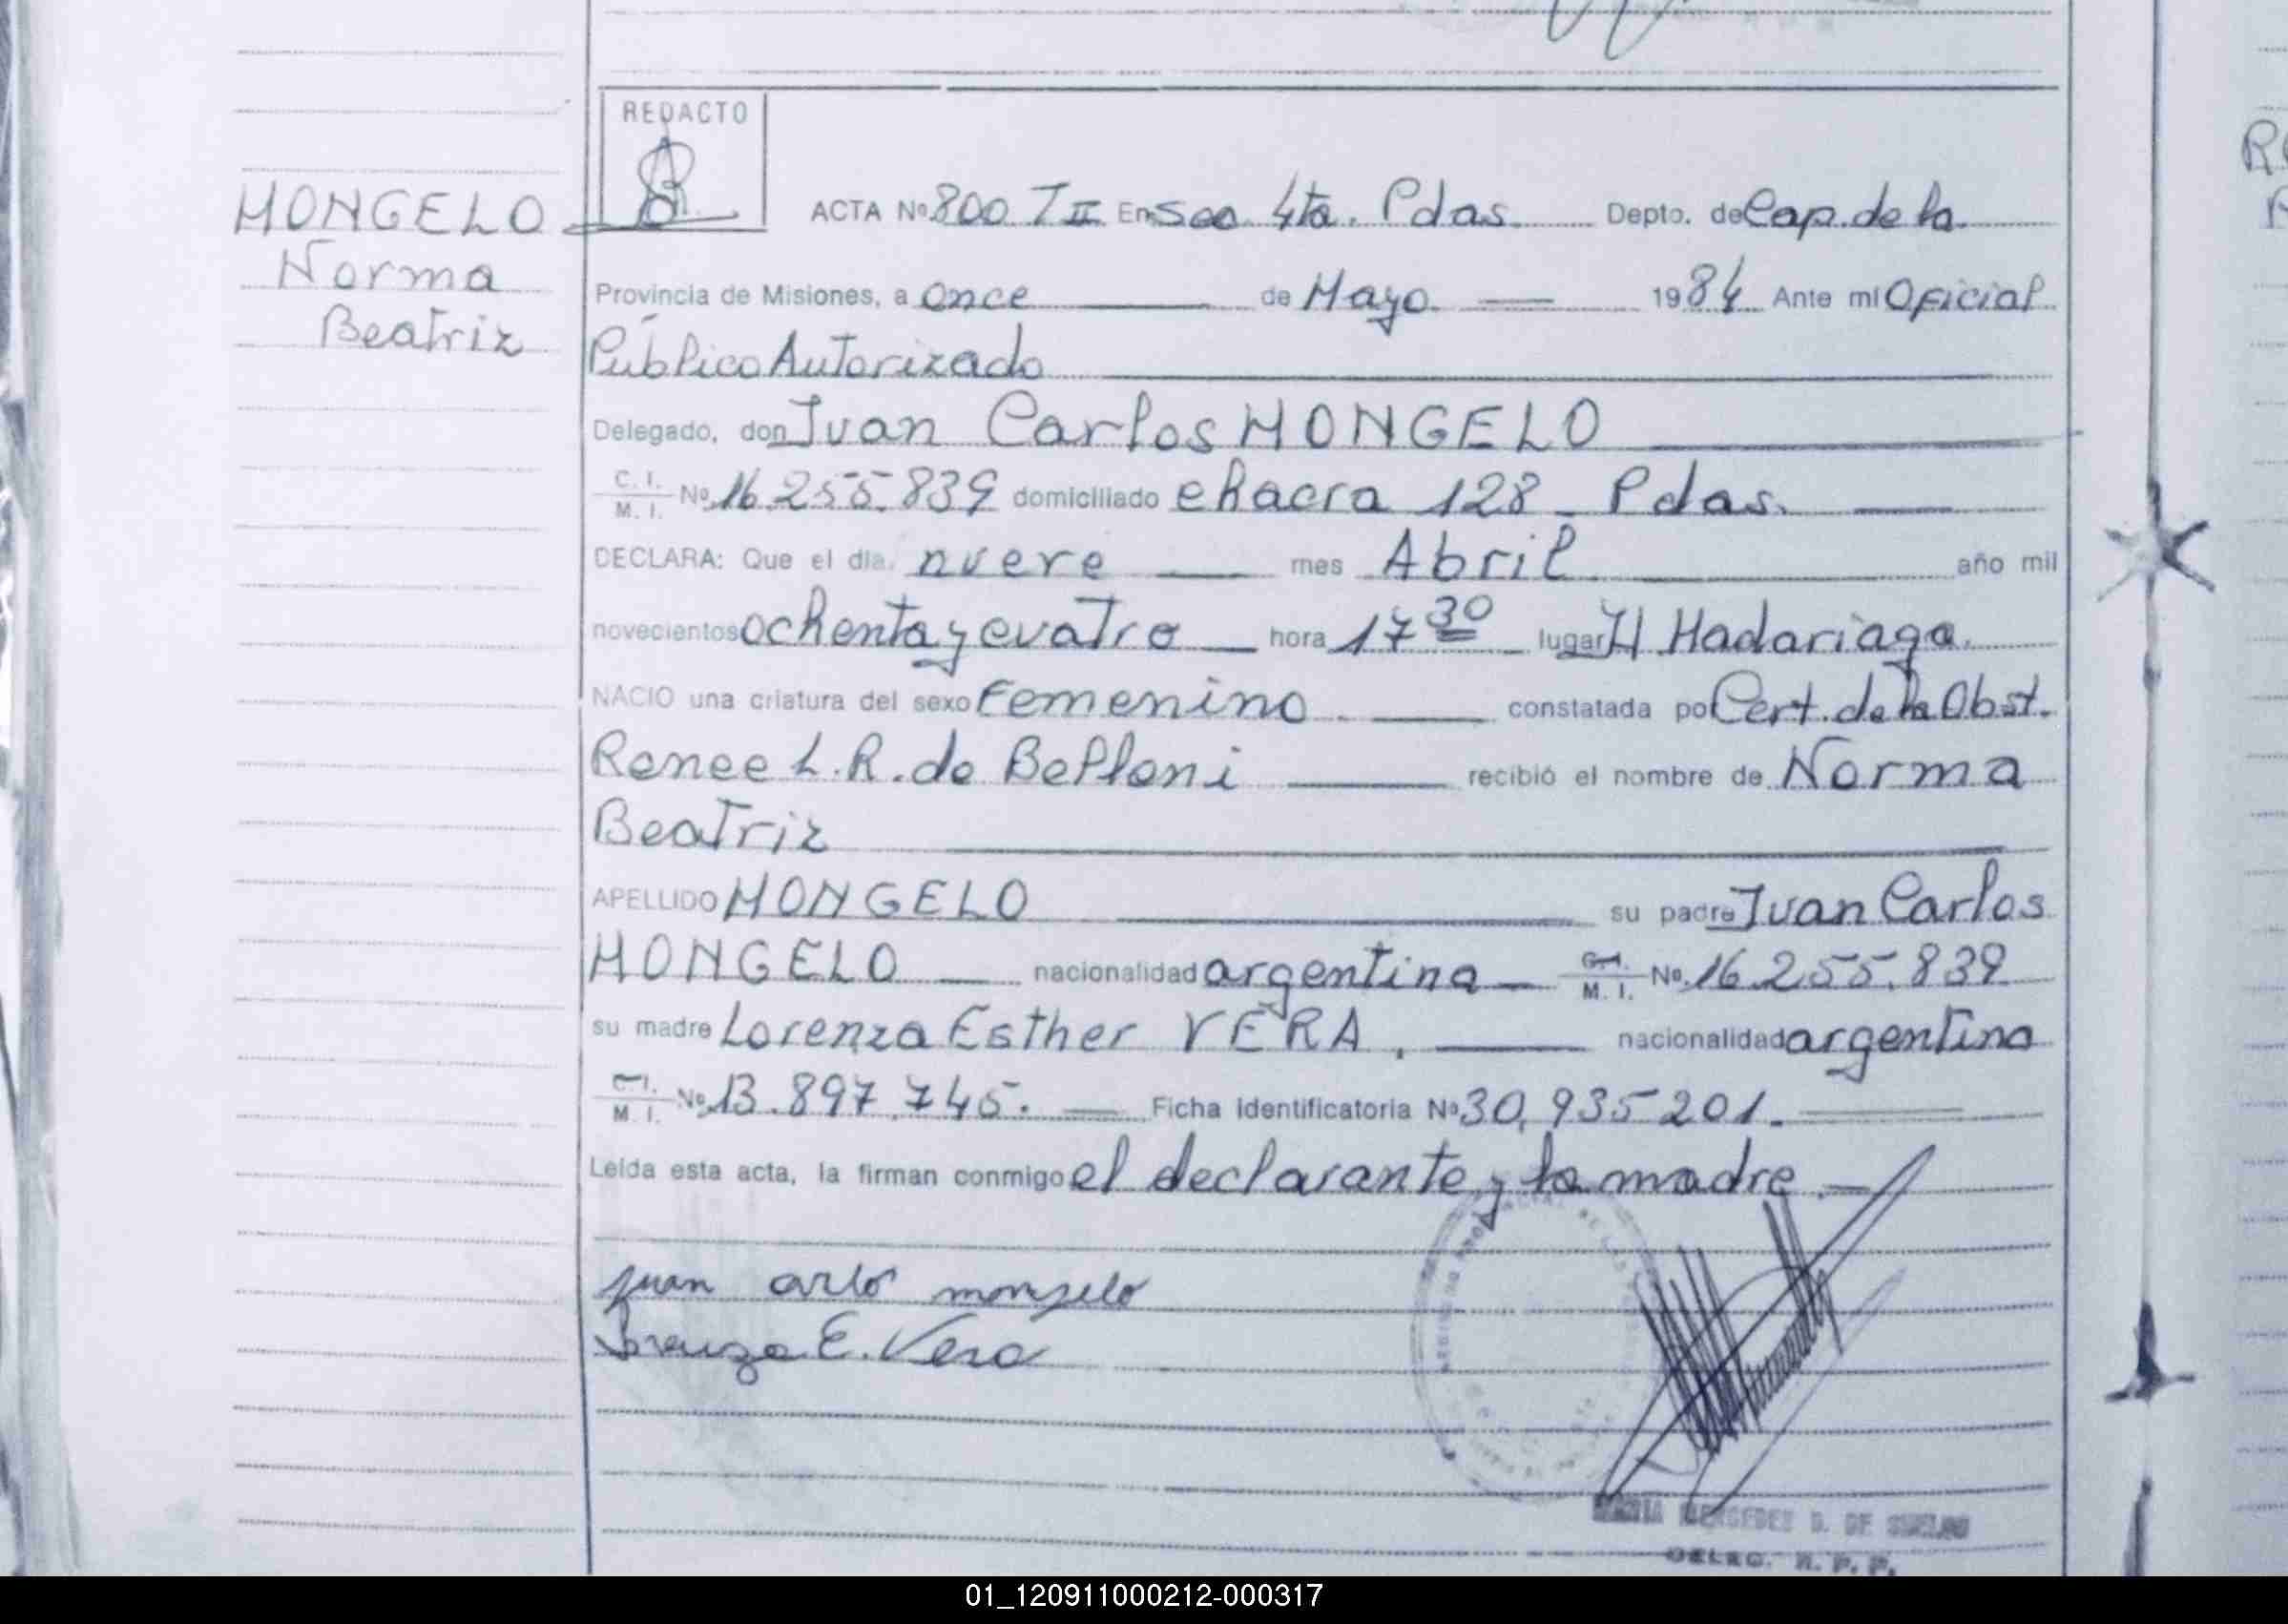 REDACTO
ACTA Nº 800 T II En Sec 4ta. Pdas. Depto. de Cap. de la
MONGELO
Norma
Beatriz
Provincia de Misiones, a Once de Mayo. 1984 Ante mí Oficial
Público Autorizado
Delegado, don Juan Carlos MONGELO
C. I.
M. I. Nº 16.255.839 domiciliado chacra 128 - Pdas.
DECLARA: Que el día nueve mes Abril año mil
novecientos ochenta y cuatro hora 17 30 lugar H Madariaga.
NACIO una criatura del sexo Femenino. constatada po Cert. de la Obst.
Renee L. R. de Belloni recibió el nombre de Norma
Beatriz
APELLIDO MONGELO su padre Juan Carlos
MONGELO nacionalidad argentina C.I. M. I. Nº 16.255.839
su madre Lorenza Esther VERA, nacionalidad argentina
C.I. M. I. Nº 13.897.745. Ficha Identificatoria Nº 30,935201.
Leída esta acta, la firman conmigo el declarante y la madre.
juan carlo mongelo
Lorenza E. Vera
MARIA MERCEDES D. DE
DELEG. R. P. P.
01_120911000212-000317